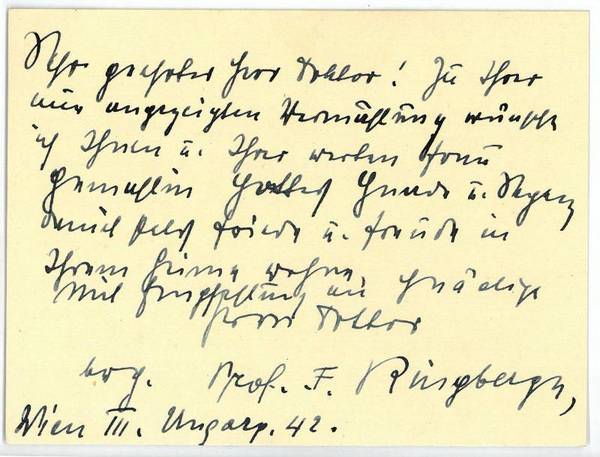 Sehr geehrter Herr Doktor! Zu Ihrer
mir angezeigten Vermählung wünsche
ich Ihnen u. Ihrer werten Frau
Gemahlin Gottes Gnade u. Segen,
damit stets Friede u. Freude in
Ihrem Heime wohne.
Mit Empfehlung an Gnädige
Frau Doktor
erg. Prof. F.
Wien III. Ungarg. 42.